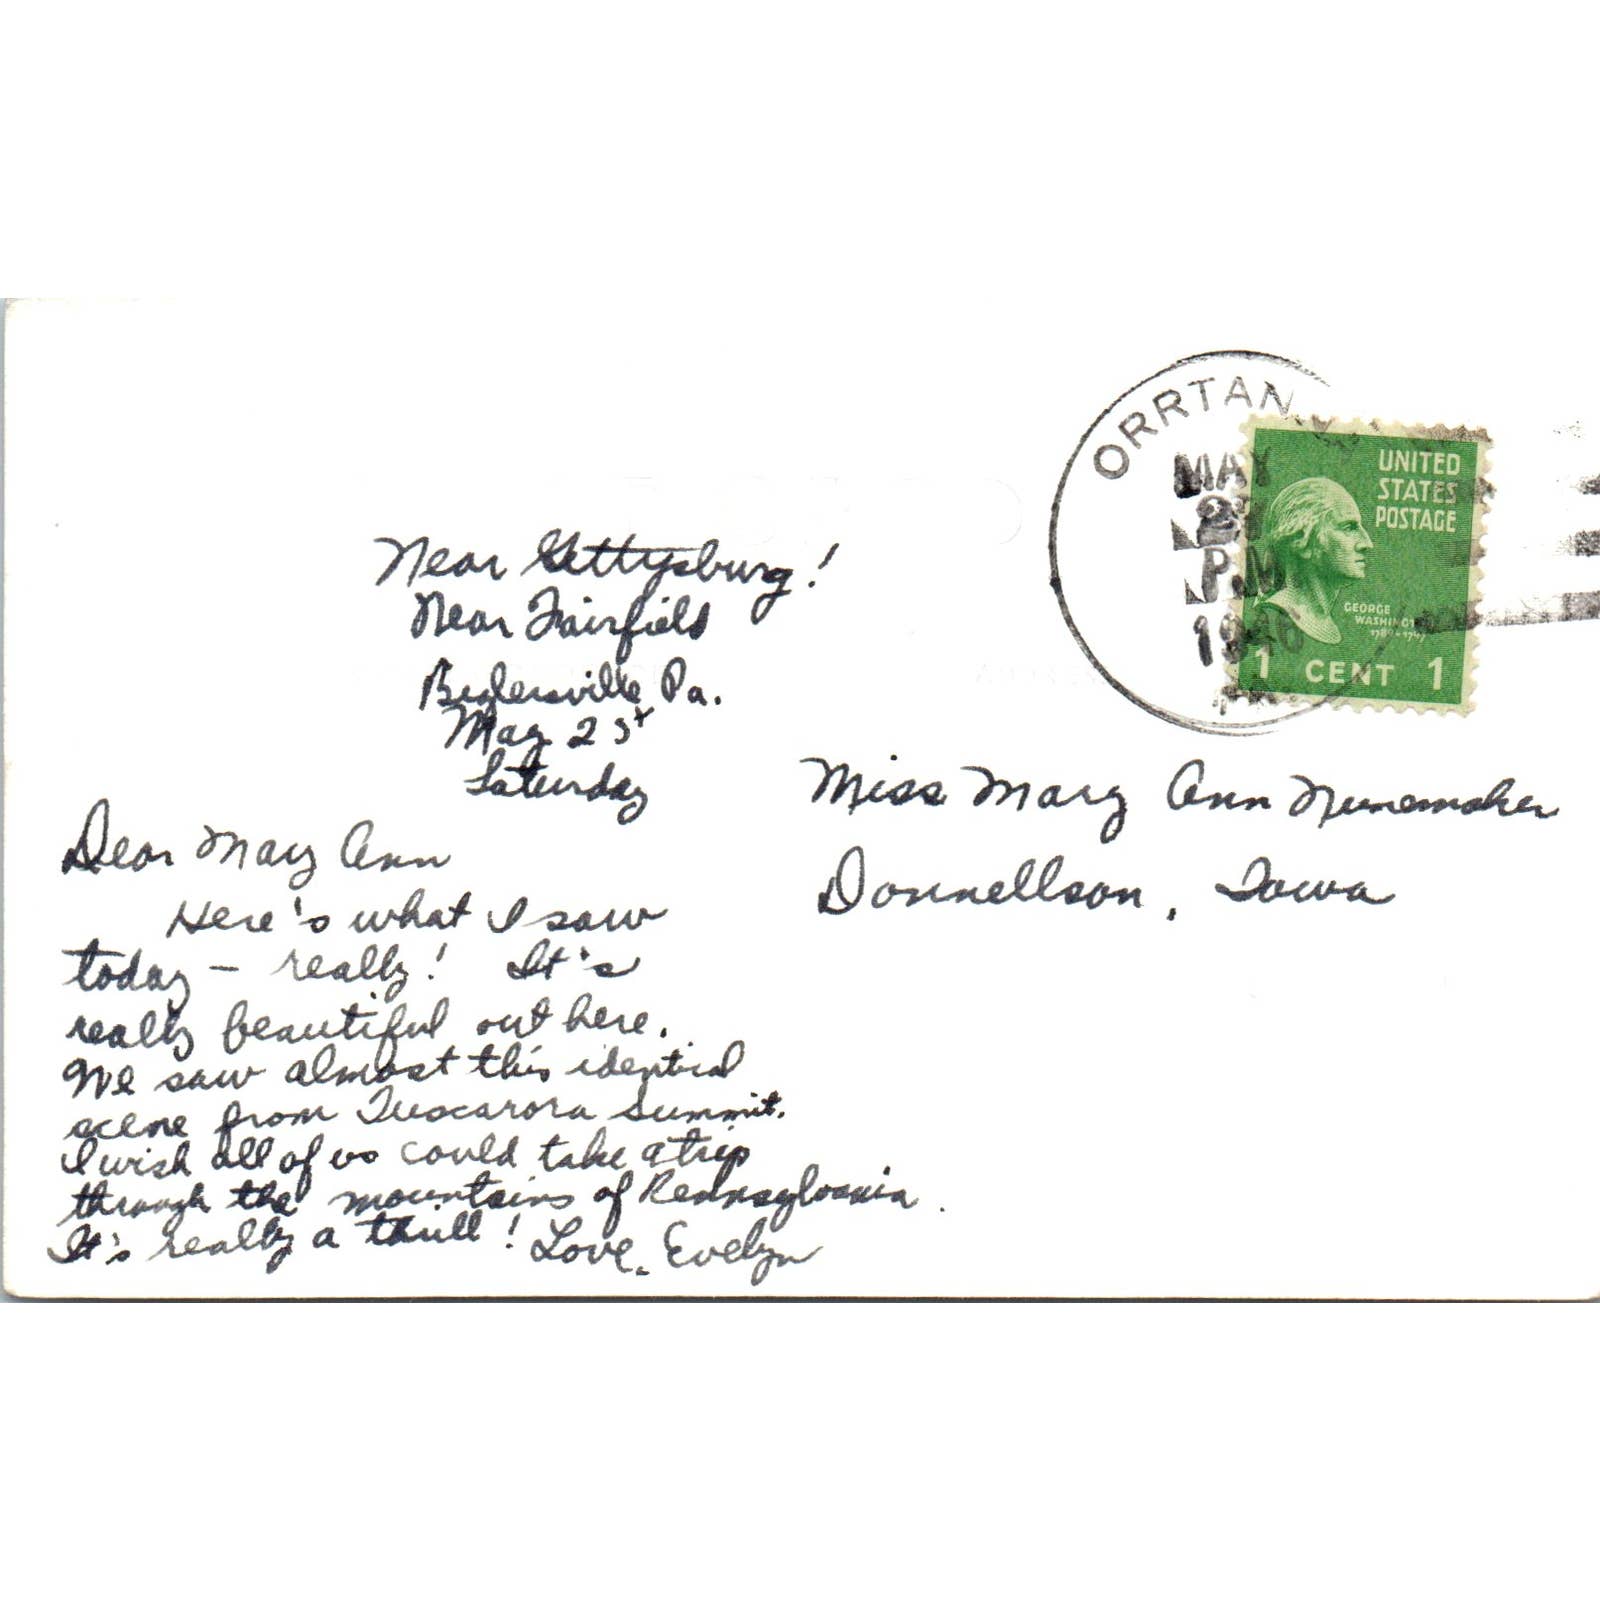 ORRTAN
MAY
P.M
UNITED
STATES
POSTAGE
GEORGE
WASHINGT
1 CENT 1
Near Gettysburg!
Near Fairfield
Biglersville Pa.
May 25
Saturday
Miss Mary Ann Nunemaker
Donnellson, Iowa
Dear Mary Ann
Here's what I saw
today - really! It's
really beautiful out here.
We saw almost this identical
scene from Tuscarora Summit.
I wish all of us could take a trip
through the mountains of Pennsylvania.
It's really a thrill! Love, Evelyn